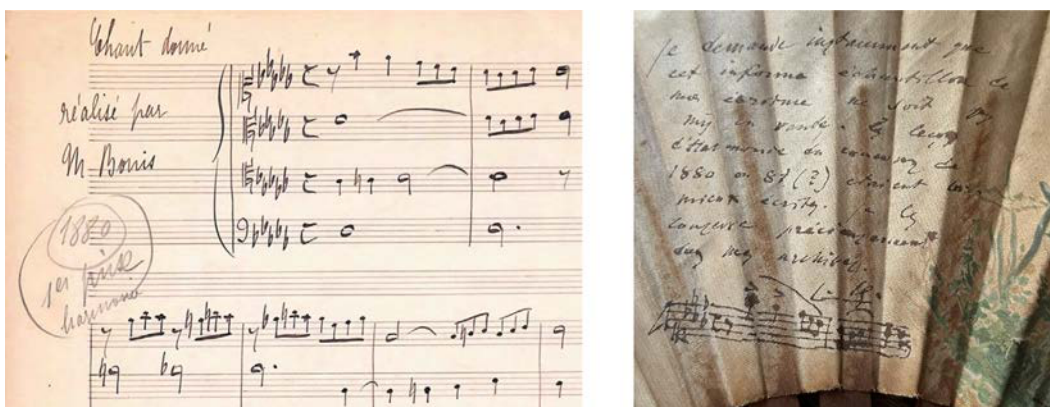 Chant donné
réalisé par
M Bonis
1880
1er prix
harmonie
je demande instamment que
cet informe échantillon de
mon écriture ne soit pas
mis en vente. La leçon
d'Harmonie du concours de
1880 ou 81 (?) étaient
mieux écrite. je la
conserve précieusement
dans mes archives.